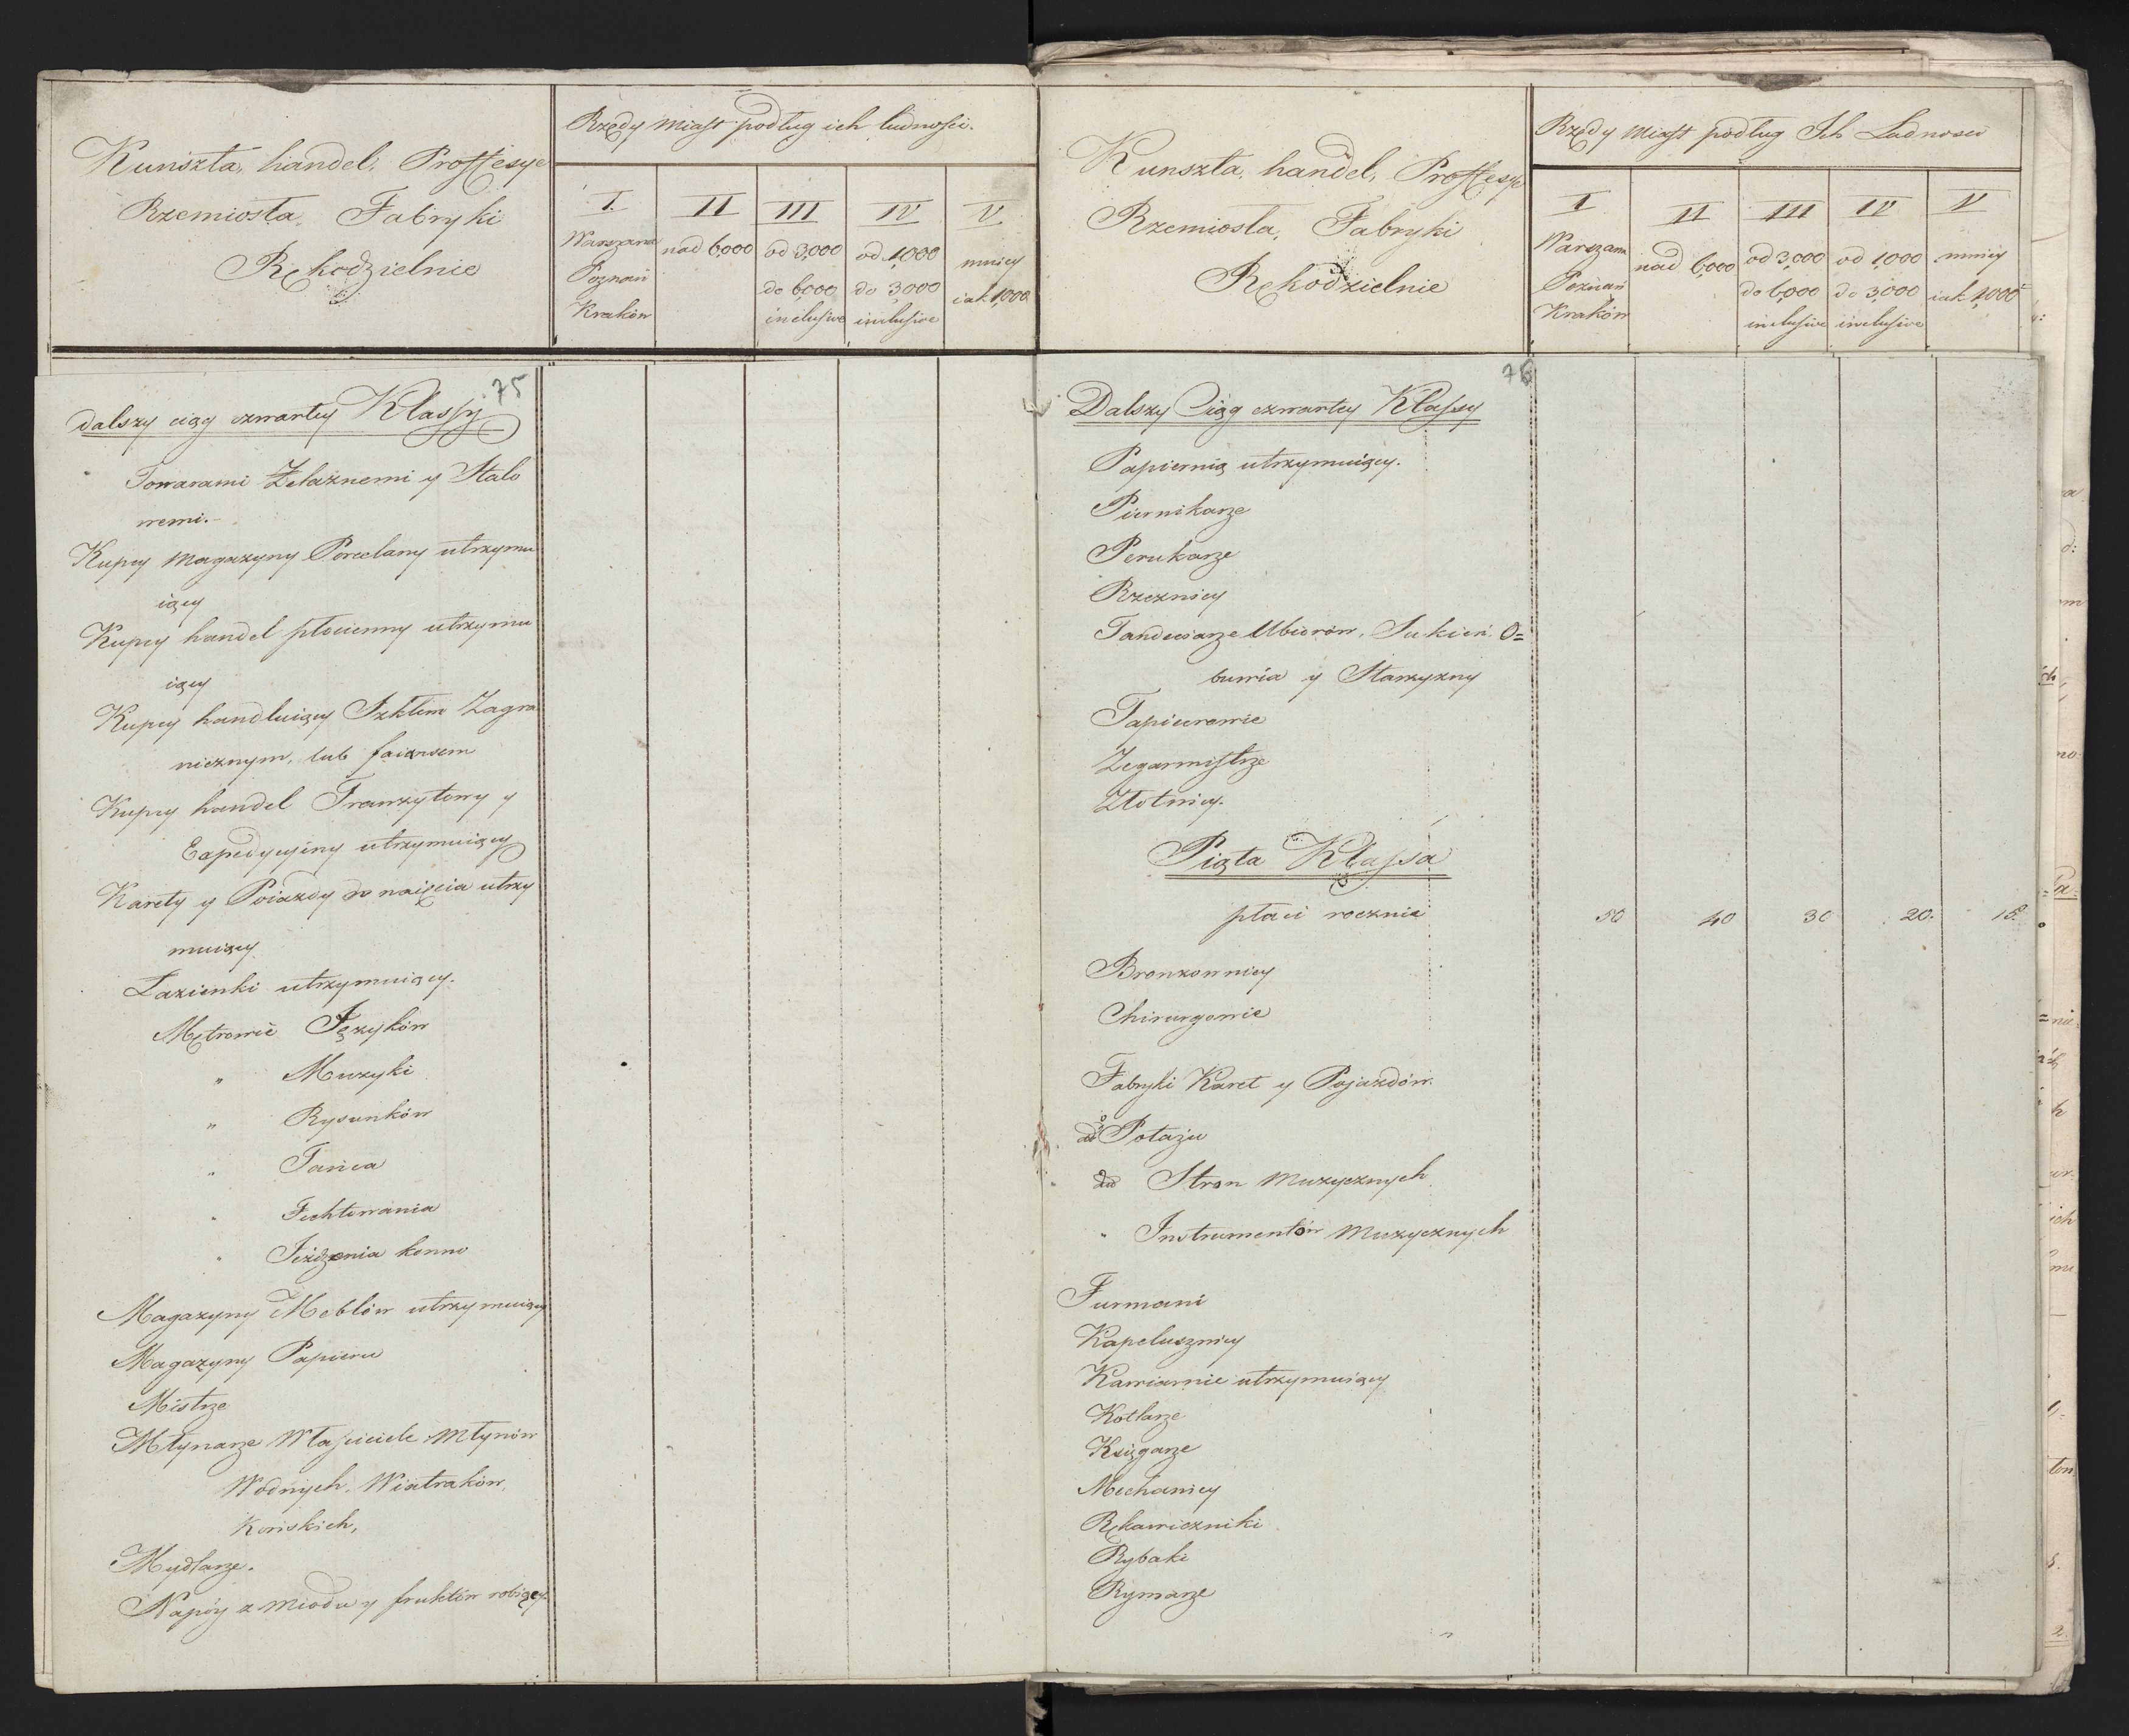 Kunszta, handel, Professye
Rzemiosła, Fabryki
Rękodzielnie
Rzędy Miast podług ich ludności.
I. II III IV V.
Warszawa
Poznań
Kraków
nad 6,000
od 3,000
do 6,000
inclusive
od 1,000
do 3,000
inclusive
mniey
iak 1,000
75
dalszy ciąg czwartey Klassy
Towarami Żelaznemi y Stalo
wemi.
Kupcy Magazyny Porcelany utrzymu
iący
Kupcy handel płócienny utrzymu
iący
Kupcy handluiący Szkłem Zagra
nicznym, lub faiansem
Kupcy handel Tranzytowy y
Expedycyiny utrzymuiący
Karety y Poiazdy do naięcia utrzy
muiący
Łazienki utrzymuiący.
Metrowie Języków
" Muzyki
" Rysunków
" Tańca
" Fechtowania
" Jeżdżenia konno
Magazyny Meblów utrzymuiący
Magazyny Papieru
Mistrze
Młynarze Właściciele Młynów
Wodnych, Wiatraków,
Końskich,
Mydlarze.
Napóy z Miodu y fruktów robiący
Kunszta, handel, Professye
Rzemiosła, Fabryki
Rękodzielnie
Rzędy Miast podług Ich Ludności
I II III IV V
Warszawa
Poznań
Kraków
nad 6,000
od 3,000
do 6,000
inclusive
od 1,000
do 3,000
inclusive
mniey
iak 1,000
76
Dalszy Ciąg czwartey Klassy
Papiernią utrzymuiący.
Piernikarze
Perukarze
Rzeznicy
Tandeciarze Ubiorów, Sukień, O=
buwia y Starzyzny
Tapicerowie
Zegarmistrze
Złotnicy.
Piąta Klassa
płaci rocznie 50 40 30 20. 15.
Bronzownicy
Chirurgowie
Fabryki Karet y Pojazdów.
do Potażu
do Stron Muzycznych
" Instrumentów Muzycznych
Furmani
Kapelusznicy
Kawiarnie utrzymuiący
Kotlarze
Księgarze
Mechanicy
Rękawiczniki
Rybaki
Rymarze